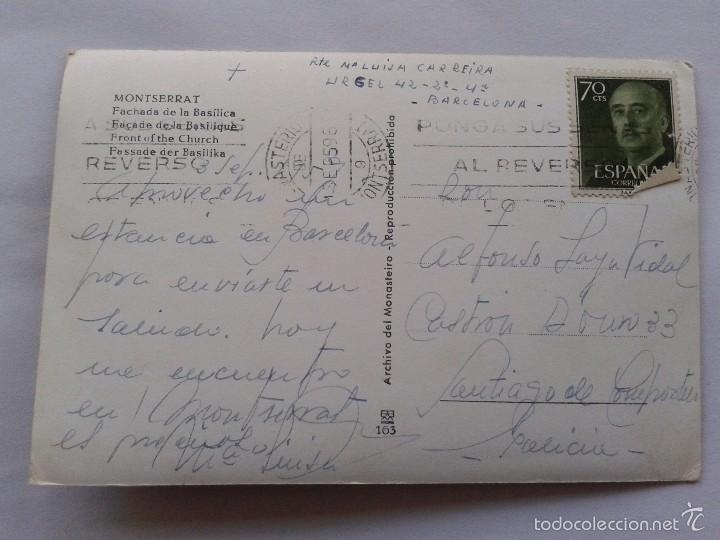 Rte Mª LUISA CARREIRA
URGEL 42-2º-4ª
- BARCELONA -
MONTSERRAT
Fachada de la Basílica
Façade de la Basilique
Front of the Church
Fassade der Basilika
3 Sep.
Aprovecho mi
estancia en Barcelona
para enviarte un
saludo. hoy
me encuentro
en Montserrat
es precioso
Mª Luisa
Archivo del Monasteiro - Reproducción prohibida
163
70
CTS
ESPAÑA
CORREOS
PONGA SUS SE
AL REVERSO
REVERSO
Don
Alfonso Vidal
Castrón Douro 33
Santiago de Compostela
- Galicia -
© todocoleccion.net